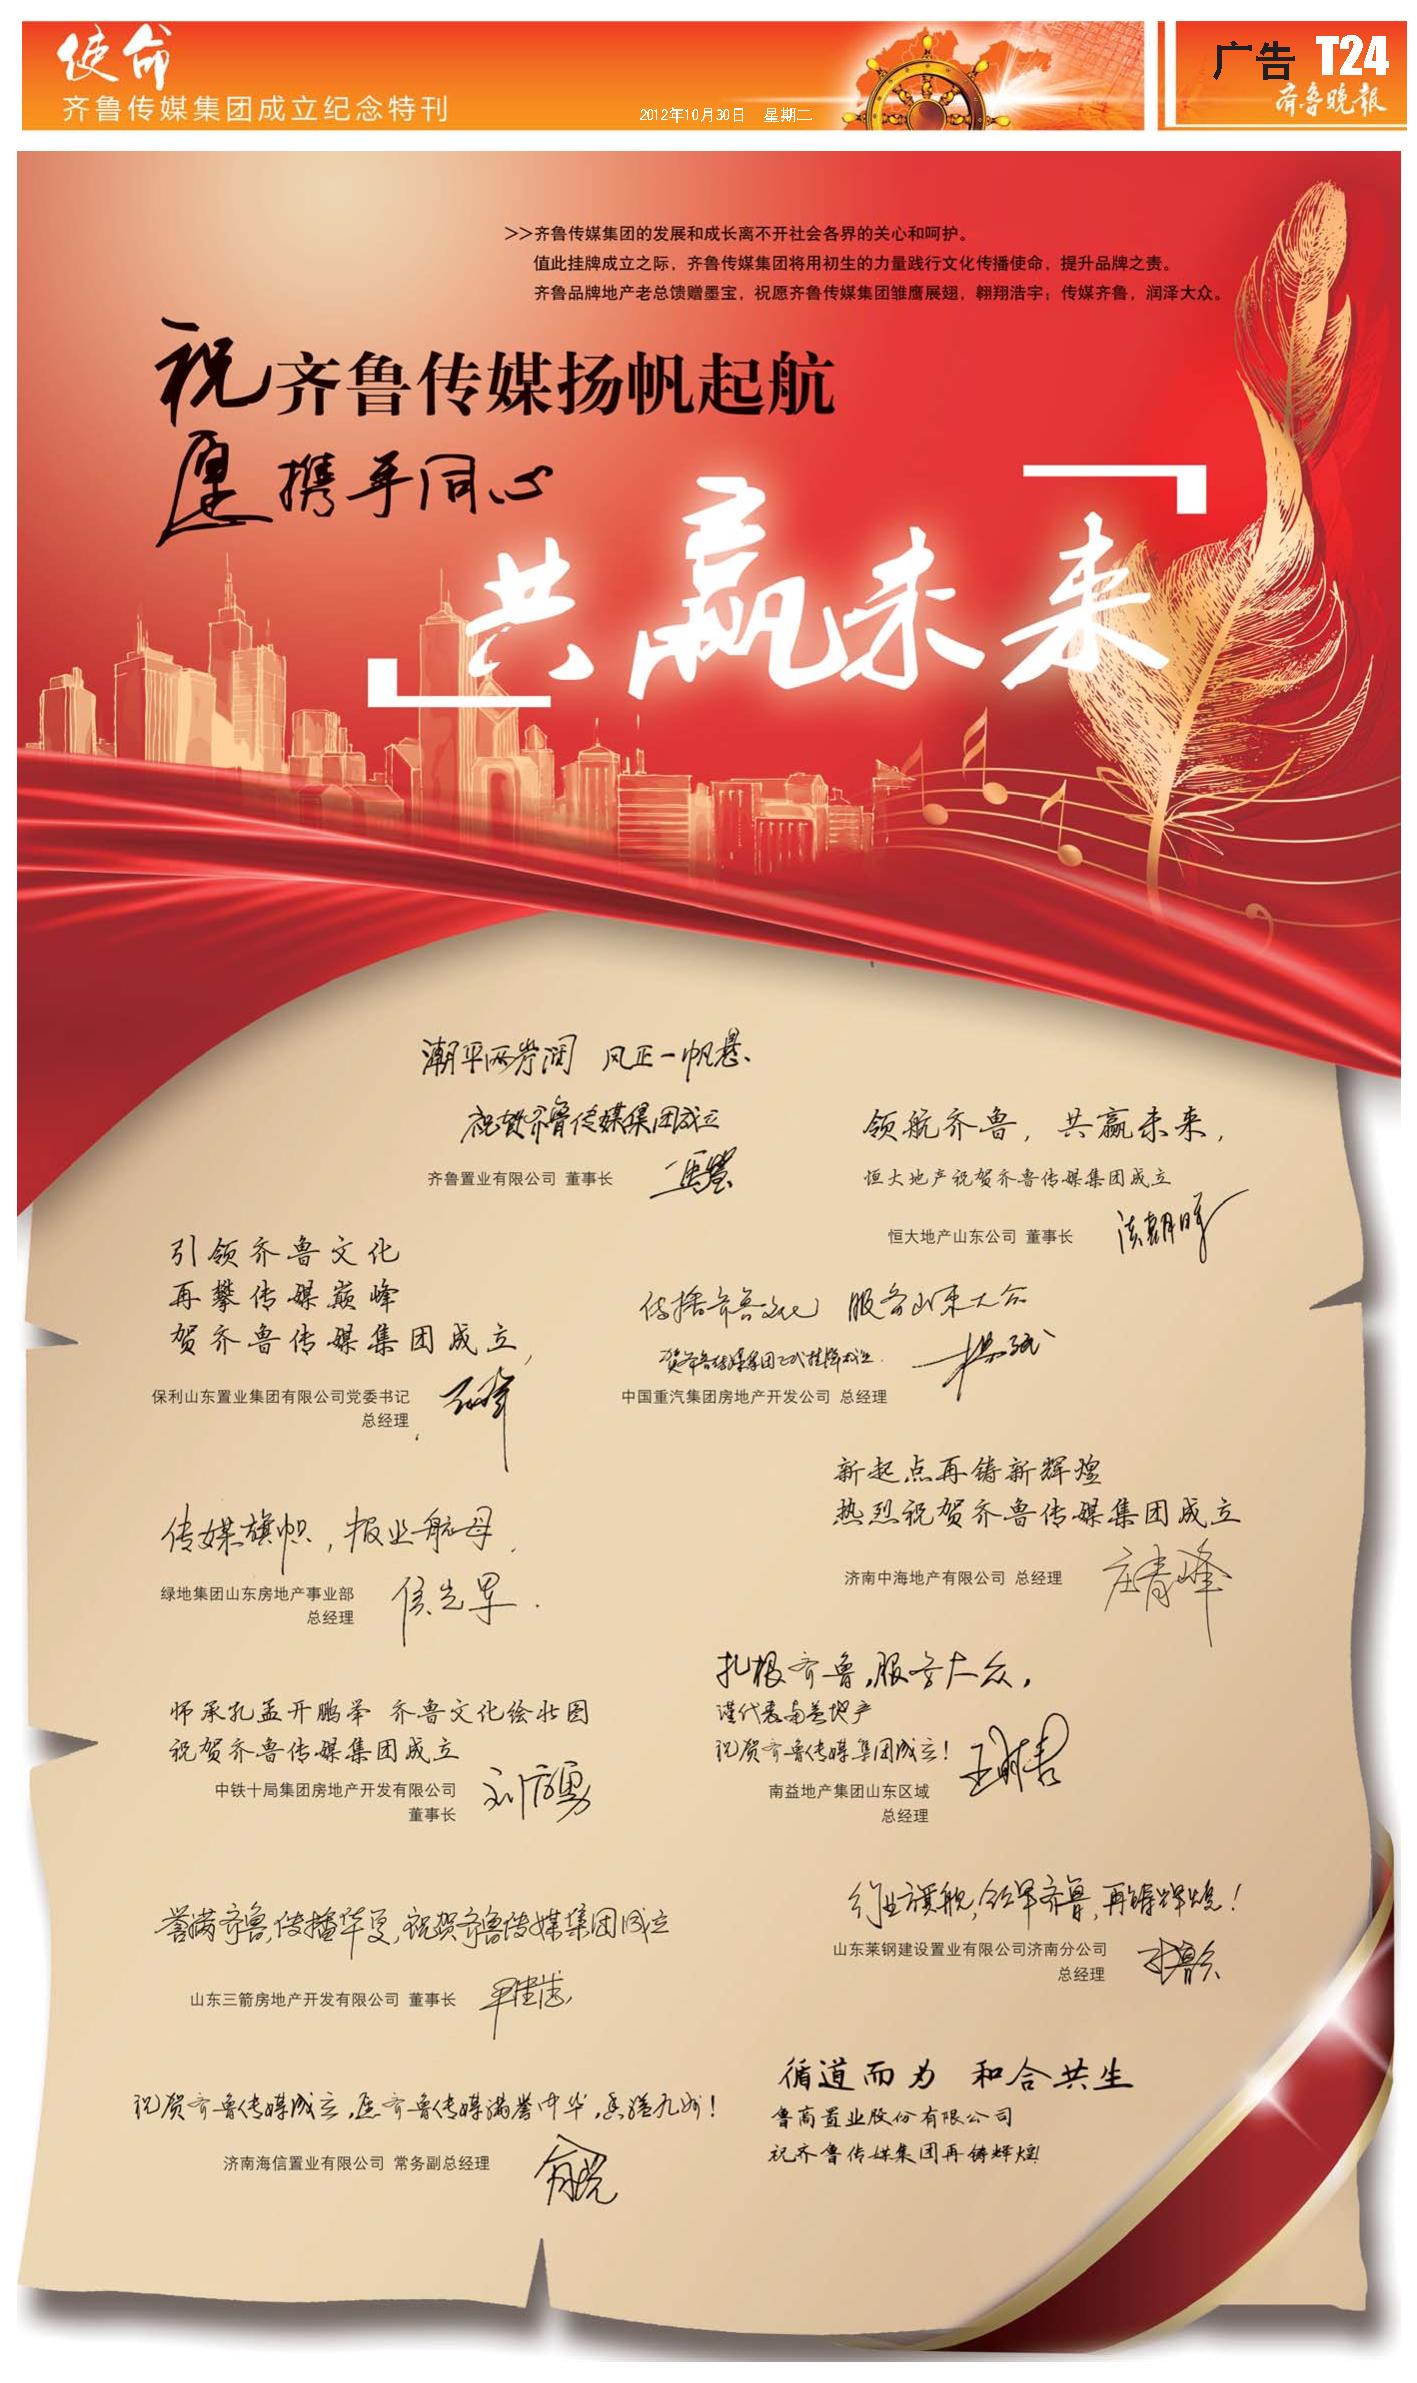 使命
齐鲁传媒集团成立纪念特刊
2012年10月30日 星期二
广告 T24
齐鲁晚报
>>齐鲁传媒集团的发展和成长离不开社会各界的关心和呵护。
值此挂牌成立之际，齐鲁传媒集团将用初生的力量践行文化传播使命，提升品牌之责。
齐鲁品牌地产老总馈赠墨宝，祝愿齐鲁传媒集团雏鹰展翅，翱翔浩宇；传媒齐鲁，润泽大众。
祝齐鲁传媒扬帆起航
愿携手同心
共赢未来
潮平两岸阔 风正一帆悬、
祝贺齐鲁传媒集团成立
齐鲁置业有限公司 董事长
领航齐鲁，共赢未来，
恒大地产祝贺齐鲁传媒集团成立
恒大地产山东公司 董事长
引领齐鲁文化
再攀传媒巅峰
贺齐鲁传媒集团成立，
保利山东置业集团有限公司党委书记
总经理
传播齐鲁文化 服务山东大众
贺齐鲁传媒集团正式挂牌成立
中国重汽集团房地产开发公司 总经理
新起点再铸新辉煌
热烈祝贺齐鲁传媒集团成立
济南中海地产有限公司 总经理
庄青峰
传媒旗帜，报业航母．
绿地集团山东房地产事业部
总经理
扎根齐鲁，服务大众，
谨代表南益地产
祝贺齐鲁传媒集团成立！
南益地产集团山东区域
总经理
师承孔孟开鹏举 齐鲁文化绘壮图
祝贺齐鲁传媒集团成立
中铁十局集团房地产开发有限公司
董事长
誉满齐鲁，传播华夏，祝贺齐鲁传媒集团成立
山东三箭房地产开发有限公司 董事长
行业旗舰，领军齐鲁，再铸辉煌！
山东莱钢建设置业有限公司济南分公司
总经理
祝贺齐鲁传媒成立，愿齐鲁传媒满誉中华，香溢九州！
济南海信置业有限公司 常务副总经理
循道而为 和合共生
鲁商置业股份有限公司
祝齐鲁传媒集团再铸辉煌!